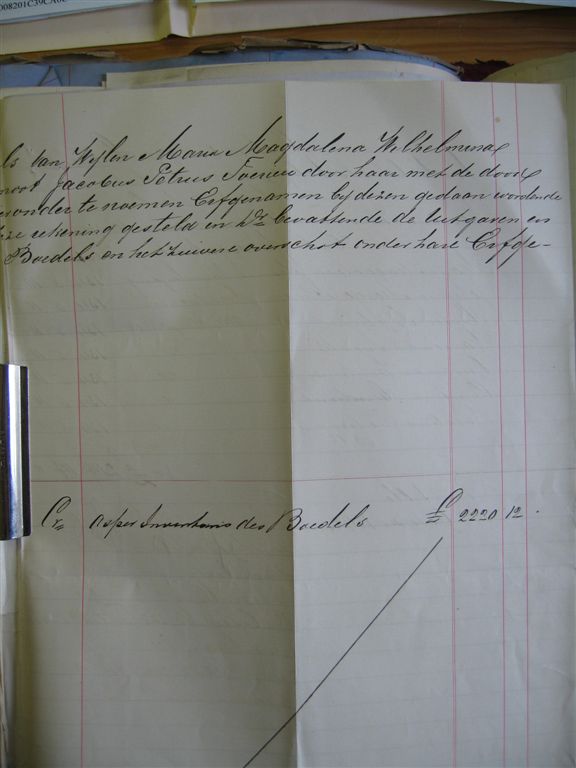 008201C39CA0
ls van Wijlen Maria Magdalena Wilhelmina
noot Jacobus Petrus Foerieu door haar met de door
eronder te noemen Erfgenamen bij dezen gedaan wordende
ze rekening gesteld en Dr bevattende de uitgaven en
Boedels en het zuivere overschot onder hare Erfge-
Cr as per Inventaris des Boedels £ 2220 12 .